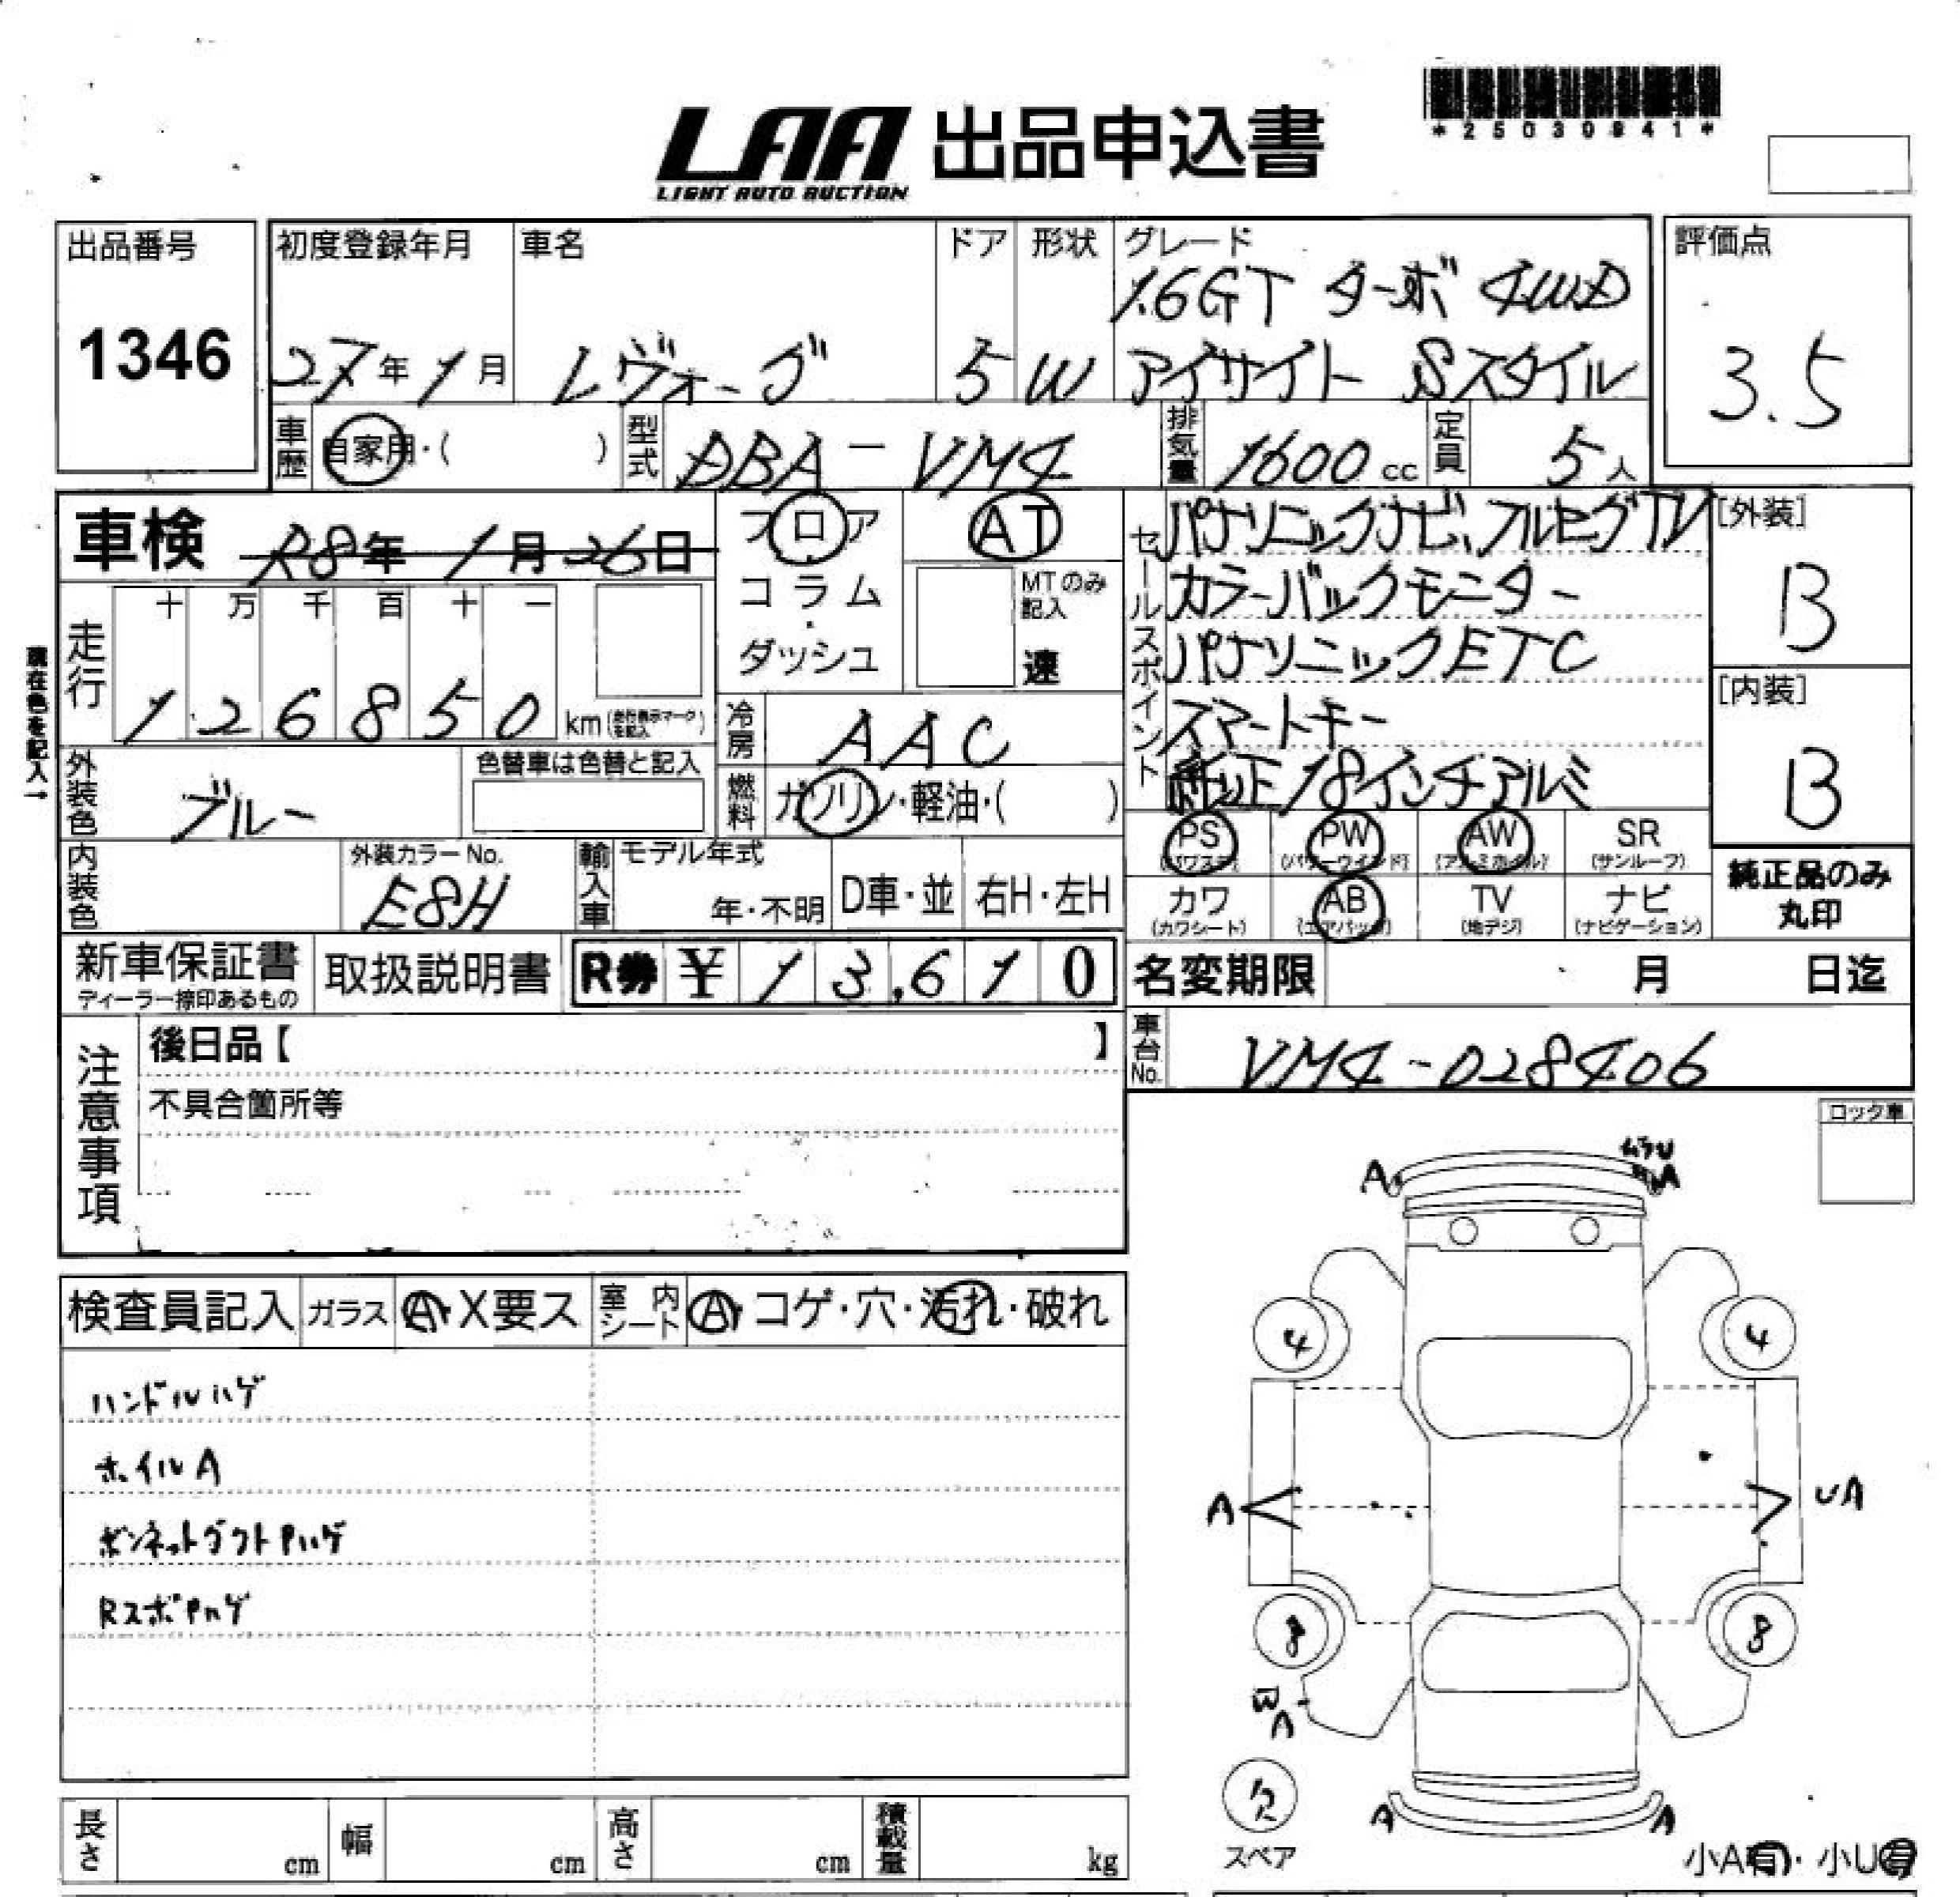 *25030841*
LAA 出品申込書
LIGHT AUTO AUCTION
出品番号
1346
初度登録年月
27年1月
車名
レヴォーグ
ドア
5
形状
W
グレード
1.6GT ターボ 4WD
アイサイト Sスタイル
評価点
3.5
車歴
自家用・( )
型式
DBA-VM4
排気量
1600cc
定員
5人
車検
R8年1月26日
フロア
・
コラム
・
ダッシュ
AT
MTのみ
記入
速
セールスポイント
パナソニックナビ、フルセグTV
カラーバックモニター
パナソニックETC
スマートキー
純正18インチアルミ
[外装]
B
[内装]
B
走行
十 万 千 百 十 一
1 2 6 8 5 0 km
現在色を記入→
冷房
AAC
外装色
ブルー
色替車は色替と記入
燃料
ガソリン・軽油・( )
PS
(パワステ)
PW
(パワーウインド)
AW
(アルミホイル)
SR
(サンルーフ)
内装色
外装カラーNo.
E8H
輸入車
モデル年式
年・不明
D車・並
右H・左H
カワ
(カワシート)
AB
(エアバッグ)
TV
(地デジ)
ナビ
(ナビゲーション)
純正品のみ
丸印
新車保証書
ディーラー捺印あるもの
取扱説明書
R券 ¥13,610
名変期限
月 日迄
注意事項
後日品【 】
不具合箇所等
車台No.
VM4-028406
ロック車
検査員記入
ガラス
A・X要ス
室内
シート
A・コゲ・穴・汚れ・破れ
ハンドルハゲ
ホイルA
ボンネットダクトPハゲ
RスポPハゲ
A
A
4
4
A
UA
8
8
A
欠
スペア
A
A
小A有・小U有
長さ
cm
幅
cm
高さ
cm
積載量
kg